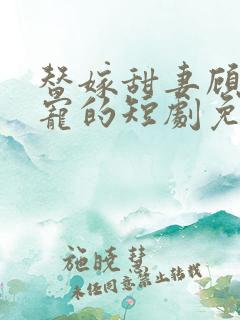 替嫁甜妻顾
宠的短劇免
施晓慧
未经同意禁止转载